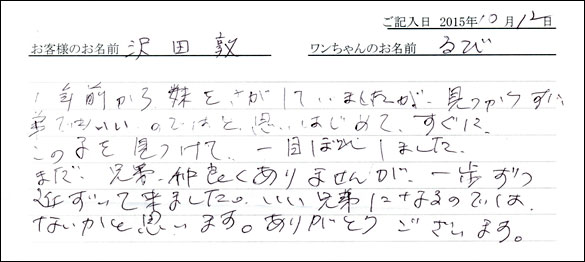 ご記入日 2015年10月12日
お客様のお名前 沢田敦 ワンちゃんのお名前 るび
1年前から妹をさがしていましたが、見つからずに
弟ではいいのではと思いはじめて、すぐに、
この子を見つけて、一目ぼれしました。
まだ、兄弟、仲良くありませんが、一歩ずつ
近ずいて来ました。いい兄弟になるのでは
ないかと思います。ありがとうございます。